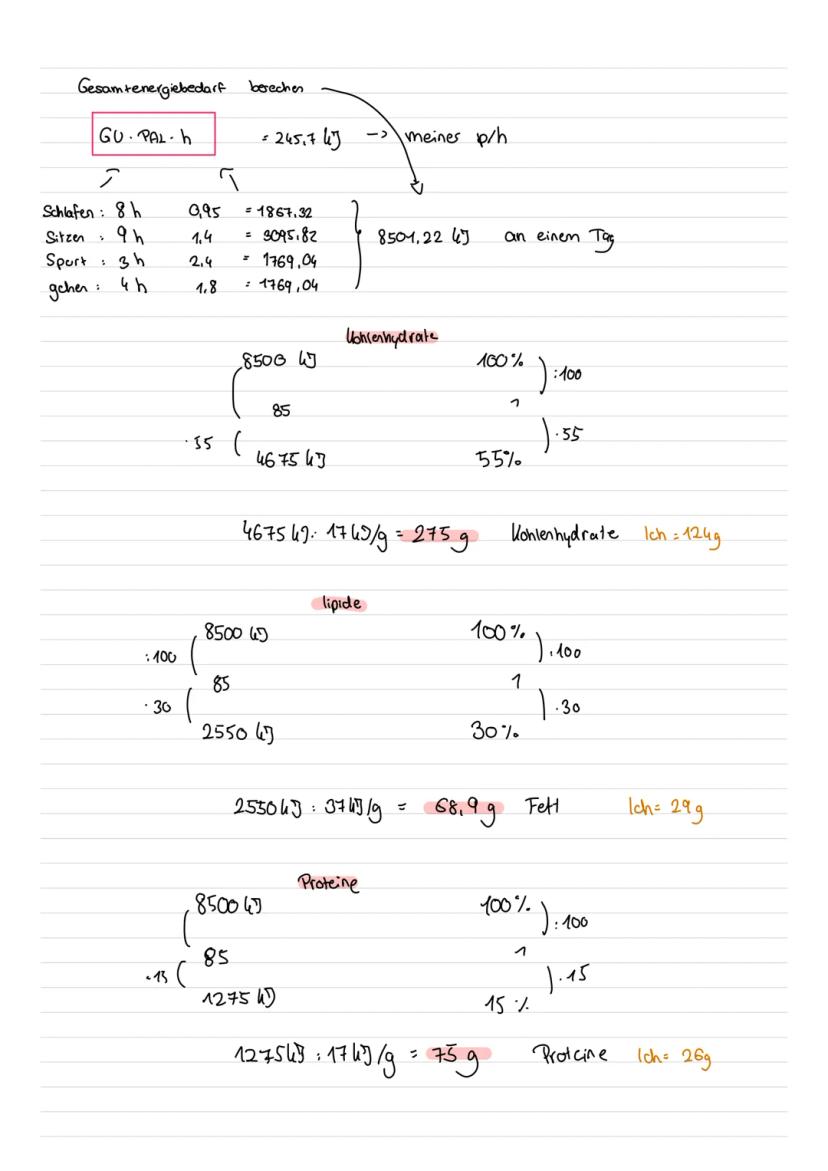 Gesamtenergiebedarf berechen
GU · PAL · h = 245,7 kJ -> meines p/h
Schlafen : 8 h 0,95 = 1867,32
Sitzen : 9 h 1,4 = 3095,82
8501,22 kJ an einem Tag
Sport : 3 h 2,4 = 1769,04
gehen : 4 h 1,8 = 1769,04
Kohlenhydrate
8500 kJ 100% :100
85 1
·55 ·55
4675 kJ 55%
4675 kJ : 17 kJ/g = 275 g Kohlenhydrate Ich = 124g
lipide
8500 kJ 100%
:100 :100
85 1
·30 ·30
2550 kJ 30%
2550 kJ : 37 kJ/g = 68,9 g Fett Ich = 29g
Proteine
8500 kJ 100% :100
85 1
·15 ·15
1275 kJ 15 %
1275 kJ : 17 kJ/g = 75 g Proteine Ich = 26g